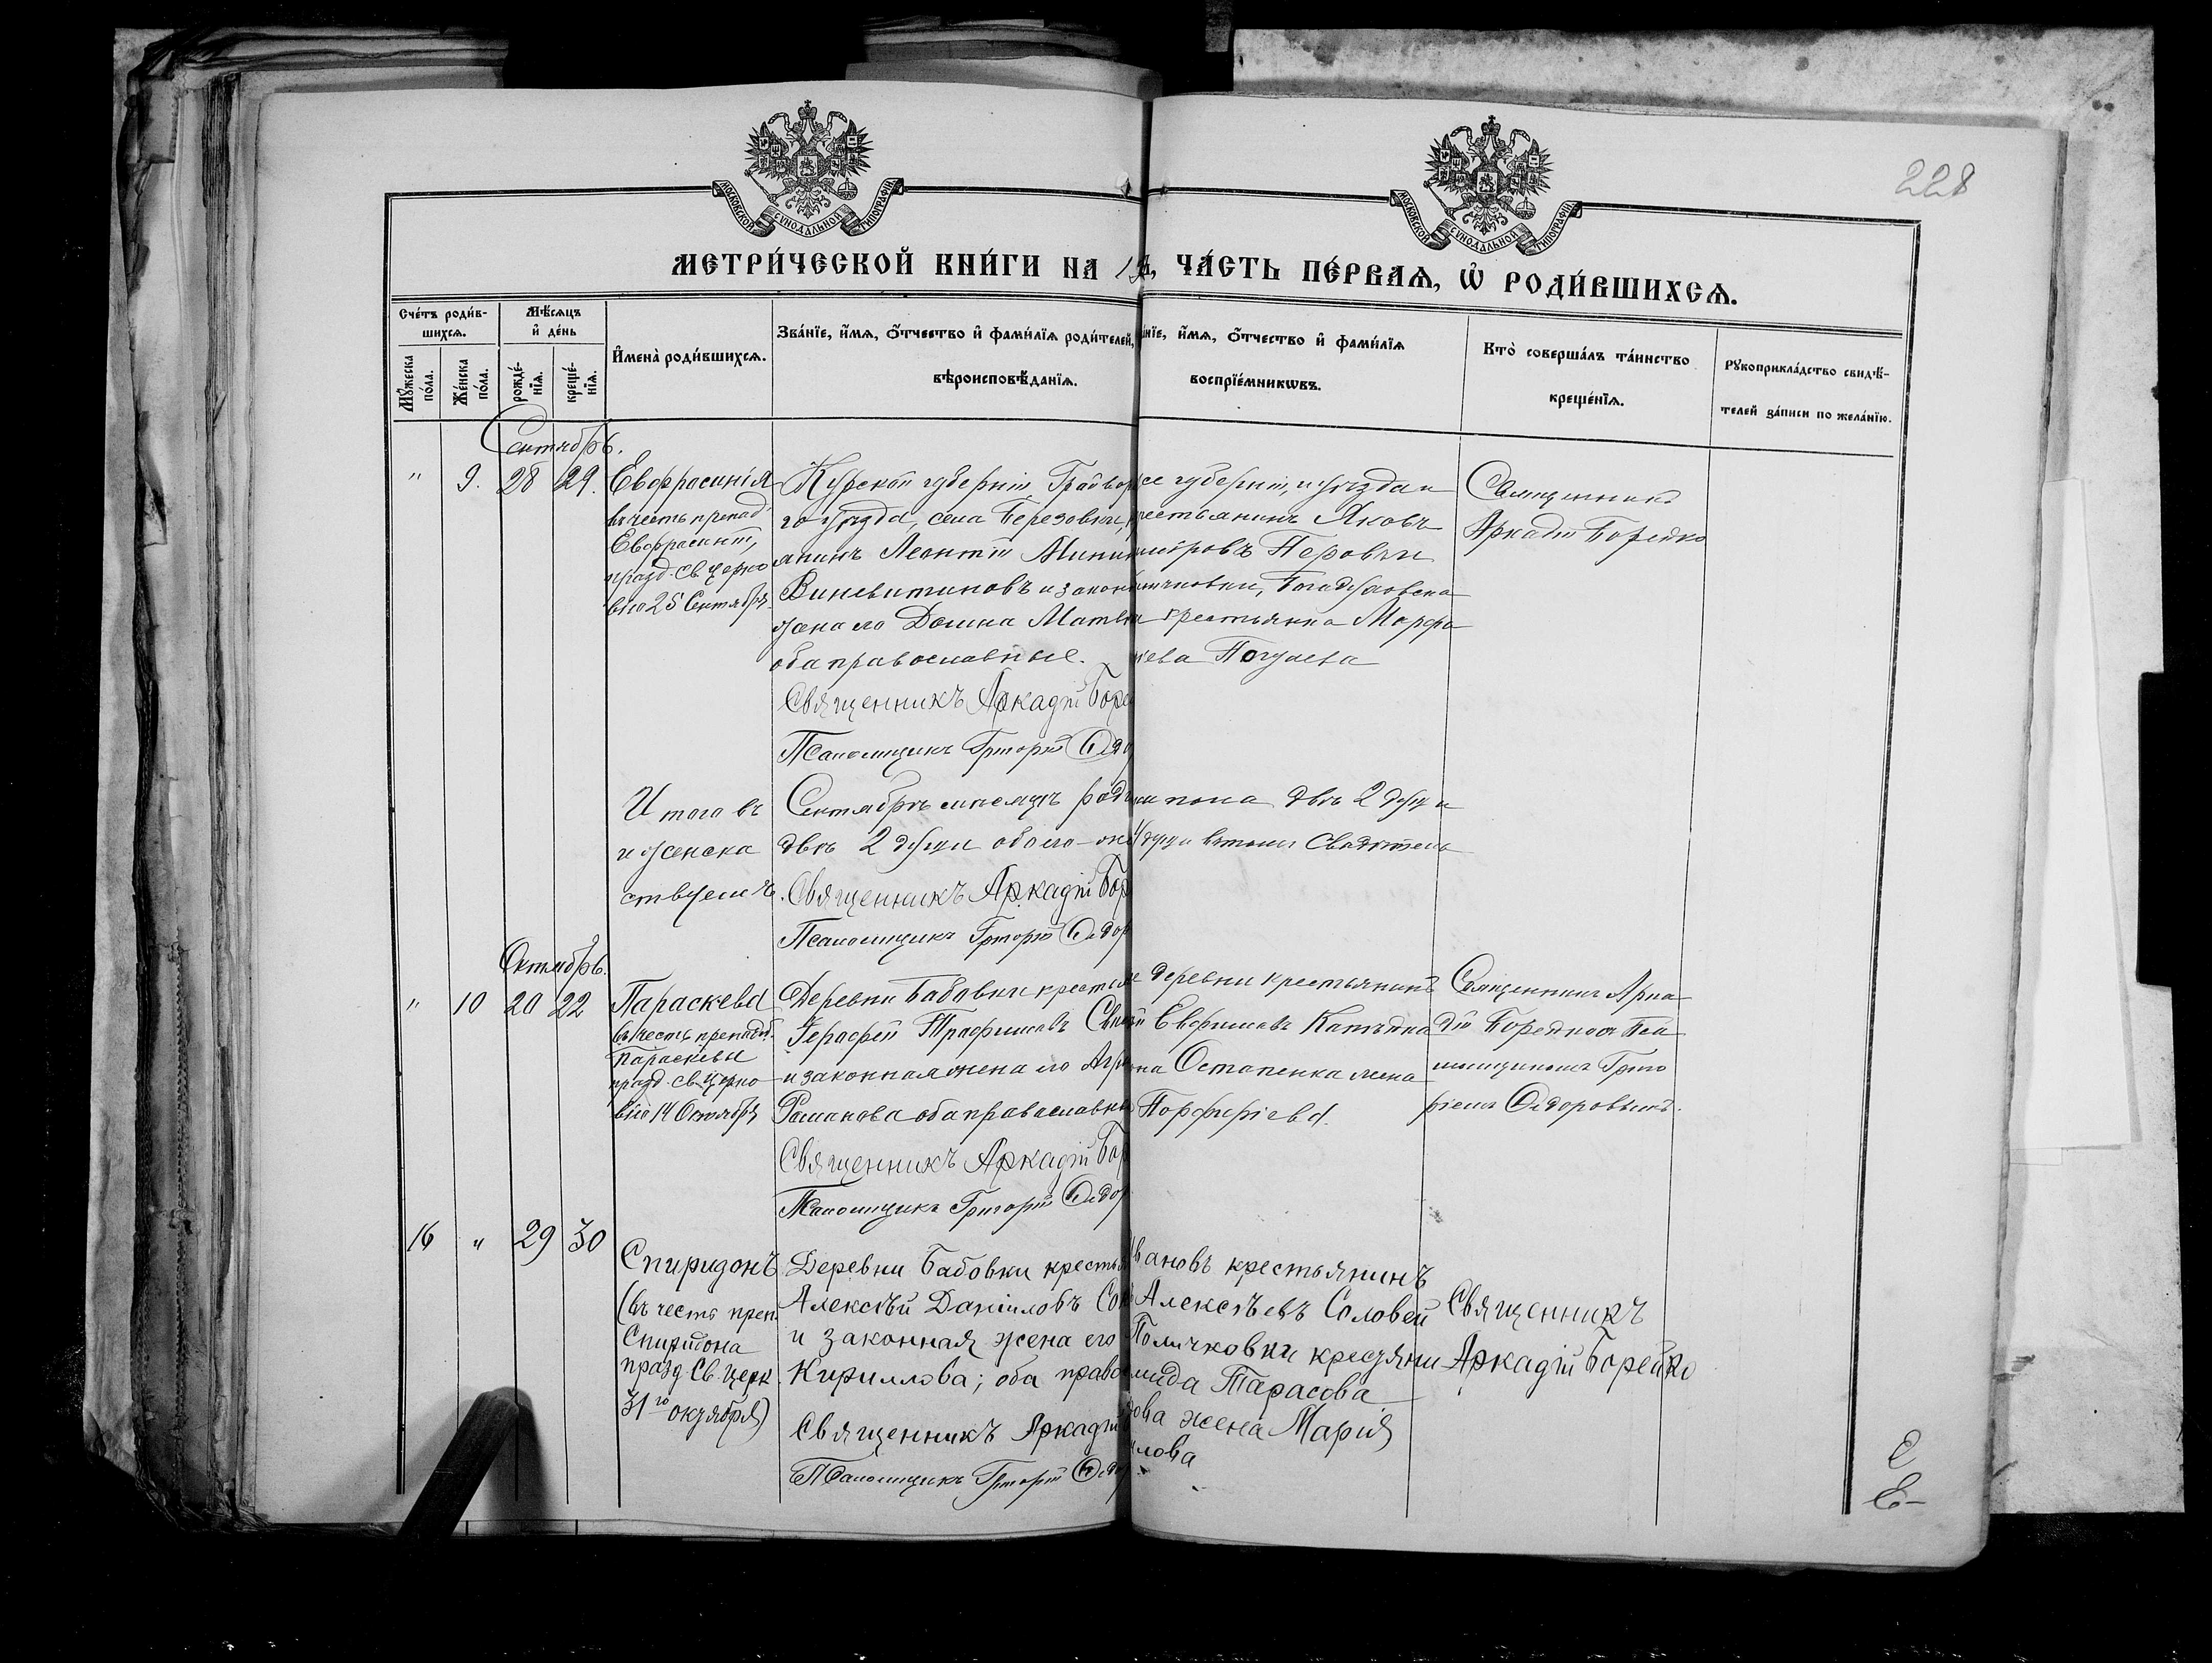 228
МОСКОВСКОЙ СѴНОДАЛЬНОЙ ТИПОГРАФІИ
МОСКОВСКОЙ СѴНОДАЛЬНОЙ ТИПОГРАФІИ
МЕТРИ́ЧЕСКОЙ КНИ́ГИ НА 1
ЧА́СТЬ ПЕ́РВАѦ, Ѡ҆ РОДИ́ВШИХСѦ.
Сче́тъ роди́в-
шихсѧ.
Мꙋ́жеска по́ла.
Же́нска по́ла.
Мѣ́сѧцъ
и҆ де́нь
рожде́-
нїѧ.
креще́-
нїѧ.
И҆мена̀ роди́вшихсѧ.
Зва́нїе, и҆́мѧ, ѻ҆́тчество и҆ фами́лїѧ роди́телей,
вѣроисповѣ́данїѧ.
а́нїе, и҆́мѧ, ѻ҆́тчество и҆ фами́лїѧ
воспрїе́мникѡвъ.
Кто̀ соверша́лъ та́инство
креще́нїѧ.
Рꙋкоприкла́дство свидѣ́-
телей за́писи по жела́нїю.
Сентябрь.
" 9. 28 29.
Евфрасинія
въ честь препод.
Евфрасиніи,
празд. св. церко
вію 25 Сентября.
Курской губерніи Грайвор
го уѣзда, села Березовки,
янинъ Леонтій Мини
Виневитиновъ и закон
жена его Домна Матве
оба православные.
Священникъ Аркадій Боре
Псаломщикъ Григорій Ѳедо
се губерніи, и уѣзда
рестьянинъ Яковъ
крестьянка Марфа
Священникъ
Аркадій Борейко
Итого въ
и женска
ствуемъ.
Сентябрѣ мѣсяцѣ род
двѣ 2 души обоего
Священникъ Аркадій Бор
Псаломщикъ Григорій Ѳедор
пола двѣ 2 души
души въ томъ свидѣтель
Октябрь.
" 10 20 22
Параскева
въ честь препод.
Параскевы
празд. св. церко
вію 14 Октября
Деревни Бабовки крестья
Трофимовъ
и законная жена его Агр
Романова оба православны
Священникъ Аркадій Бор
Псаломщикъ Григорій Ѳедор
деревни крестьянинъ
Остапенка жена
Порфиріева.
Священникъ Арка
дій Борейко съ Пса
ломщикомъ Григо
ріемъ Ѳедоровымъ.
16 " 29 30
Спиридонъ
(въ честь преп.
Спиридона
празд. Св. церк.
31го октября)
Деревни Бабовки крестья
Алексѣй Даніиловъ Со
и законная жена его
Кириллова; оба право
Священникъ Аркадій
Псаломщикъ Григорій Ѳедор
вановъ крестьянинъ
Алексѣевъ Соловей
мида Тарасова
дова жена Марія
лова
Священникъ
Аркадій Борейко